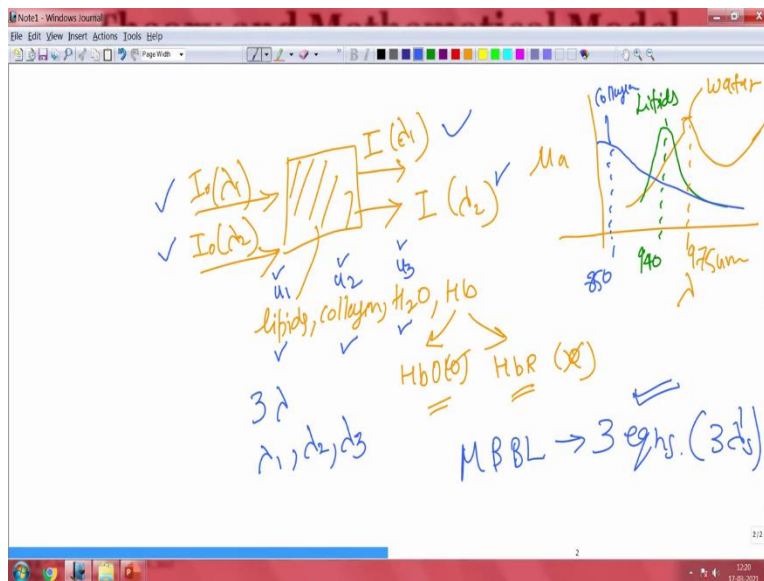 Theory and Mathematical Model
Note1 - Windows Journal
File Edit View Insert Actions Tools Help
Page Width
B I
I₀(λ1)
I₀(λ2)
I(λ1)
I(λ2)
u1 u2 u3
lipids, collagen, H2O, Hb
HbO HbR
3λ
λ1, λ2, λ3
MBBL → 3 eqns. (3λ's)
μa
Collagen
Lipids
Water
850
940
975um
λ
2/2
2
12:20
17-03-2021